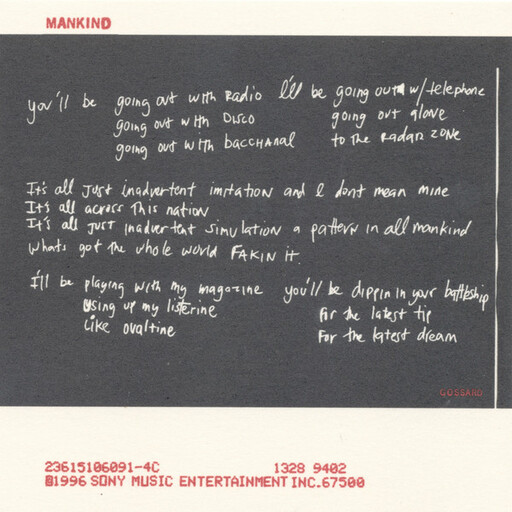 MANKIND
you'll be going out with Radio
going out with DISCO
going out with bacchanal
I'll be going out w/telephone
going out alone
to the Radar zone
It's all just inadvertent imitation and I dont mean mine
It's all across this nation
It's all just inadvertent simulation a pattern in all mankind
whats got the whole world FAKIN it.
I'll be playing with my magazine
using up my listerine
like ovaltine
you'll be dippin in your battleship
for the latest tip
For the latest dream
GOSSARD
23615106091-4C 1328 9402
©1996 SONY MUSIC ENTERTAINMENT INC.67500